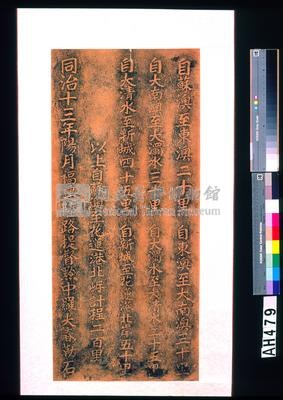 自蘇澳至東澳二十里 自東澳至大南澳三十里
自大南澳至大濁水三十里 自大濁水至大清水二十五里
自大清水至新城四十五里 自新城至花蓮港北岸五十里
以上自蘇澳至花蓮港北岸計程二百里
同治十三年陽月福建陸路提督黔中羅大春勒石
AH479